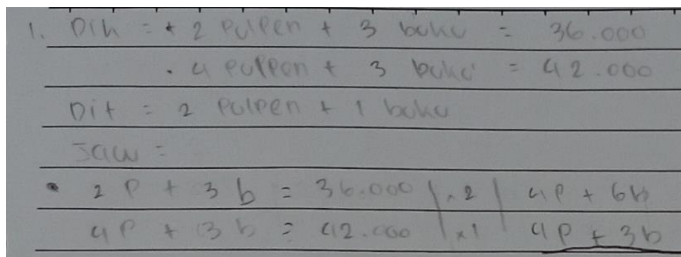 1. Dik = • 2 Pulpen + 3 buku = 36.000
• 4 Pulpen + 3 buku = 42.000
Dit = 2 Pulpen + 1 buku
Jaw =
• 2 P + 3 b = 36.000 | x2 | 4P + 6b
4P + 3 b = 42.000 | x1 | 4P + 3b